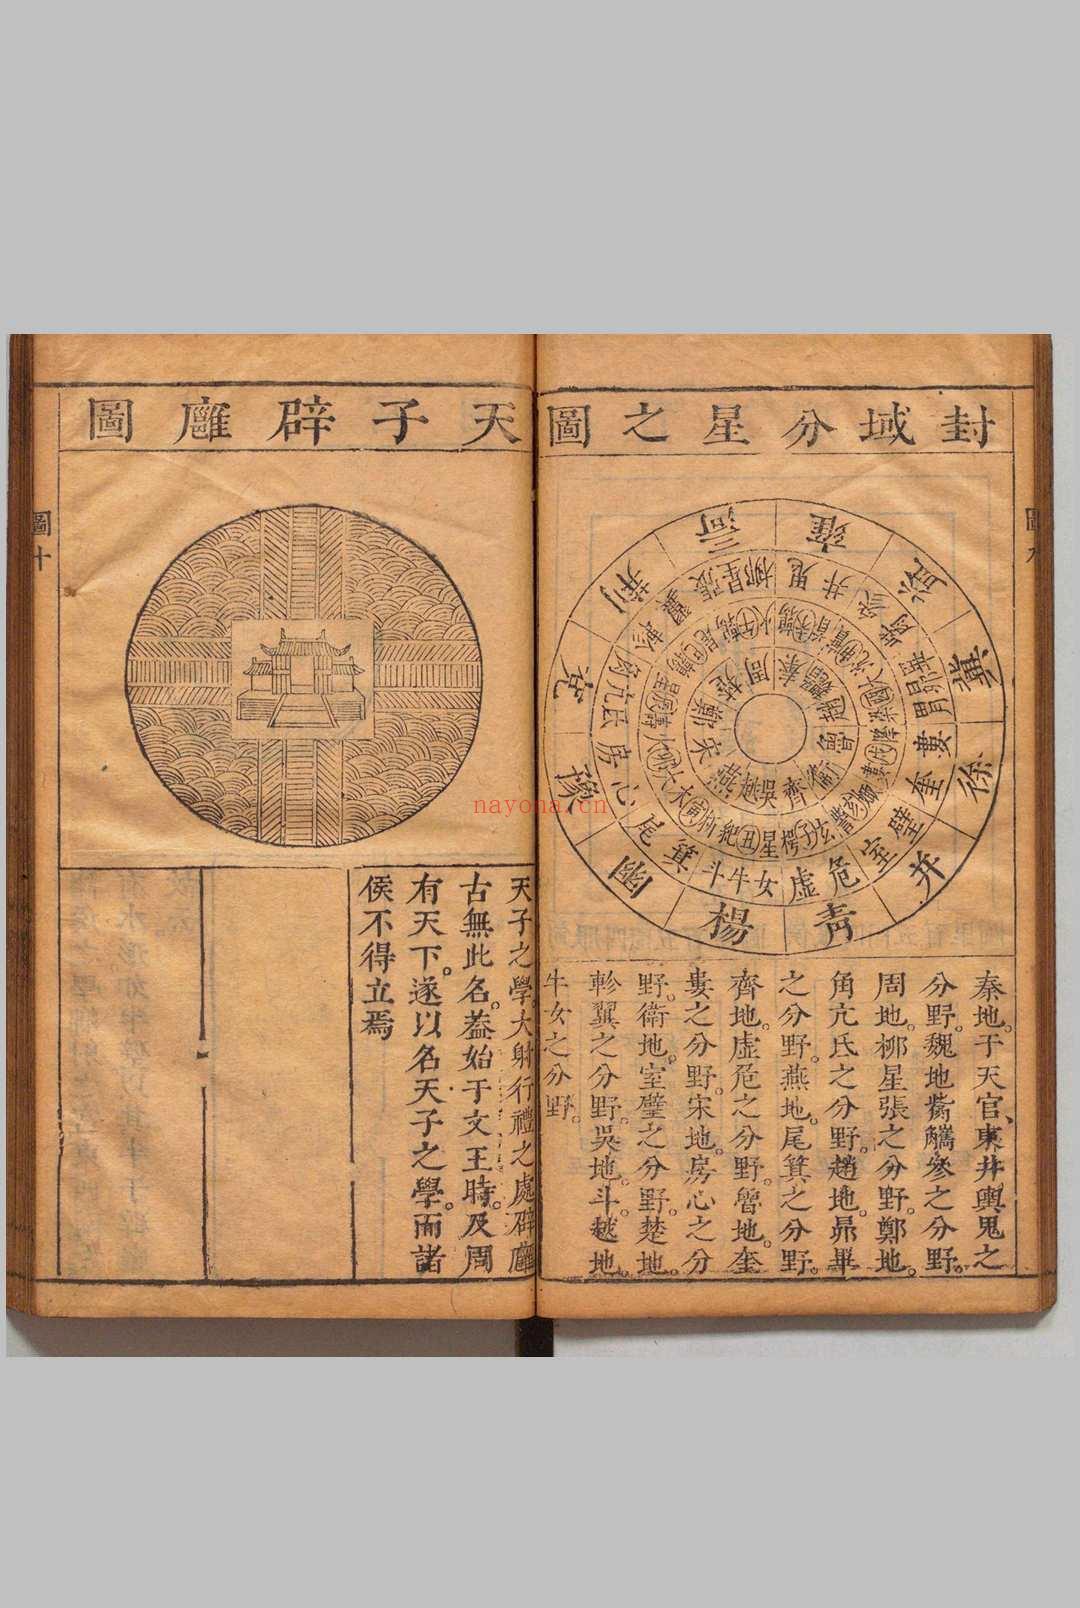 封域分星之圖
雍
益
冀
徐
并
青
揚
幽
豫
兗
荆
三河
井鬼
參
觜
畢
昴
胃
婁
奎
壁
室
危
虛
女牛斗
箕
尾
心
房
氐亢角
軫
翼
張星柳
秦
魏
趙
魯
衛
齊
吳
越
燕
宋
鄭
楚
周
秦地。于天官、東井輿鬼之
分野。魏地觜觿參之分野。
周地。柳星張之分野。鄭地。
角亢氐之分野。趙地。昴畢
之分野。燕地。尾箕之分野。
齊地。虛危之分野。魯地。奎
婁之分野。宋地。房心之分
野。衛地。室璧之分野。楚地。
軫翼之分野。吳地。斗。越地。
牛女之分野。
天子辟廱圖
天子之學。大射行禮之處。辟廱
古無此名。葢始于文王時。及周
有天下。遂以名天子之學。而諸
侯不得立焉
圖十
nayona.cn